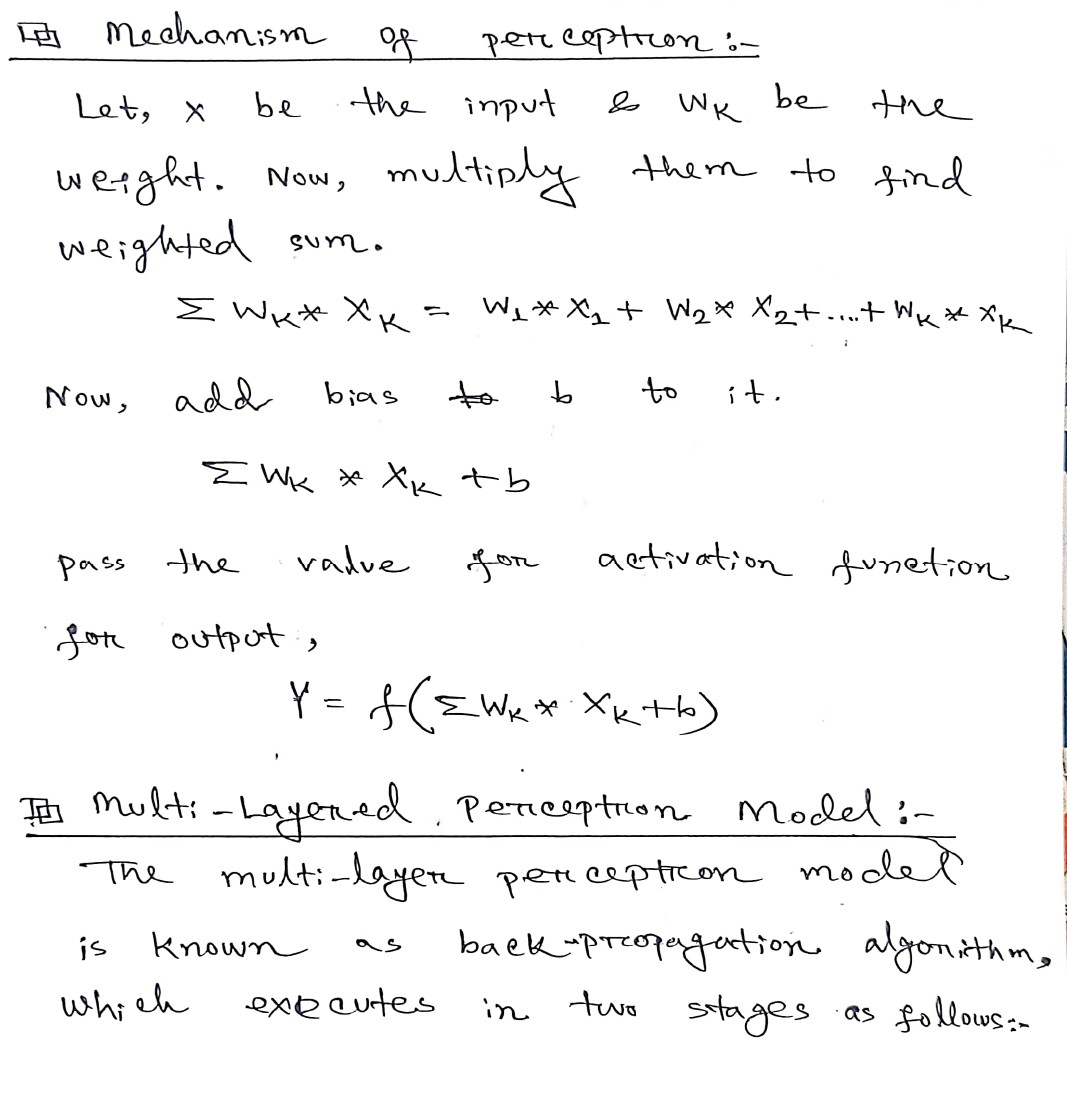 Mechanism of perceptron :-
Let, x be the input & WK be the
weight. Now, multiply them to find
weighted sum.
Σ WK * XK = W1 * X1 + W2 * X2 + ....+ WK * XK
Now, add bias to b to it.
Σ WK * XK + b
pass the value for activation function
for output,
Y = f(Σ WK * XK + b)
Multi-Layered Perceptron Model :-
The multi-layer perceptron model
is known as back-propagation algorithm,
which executes in two stages as follows:-